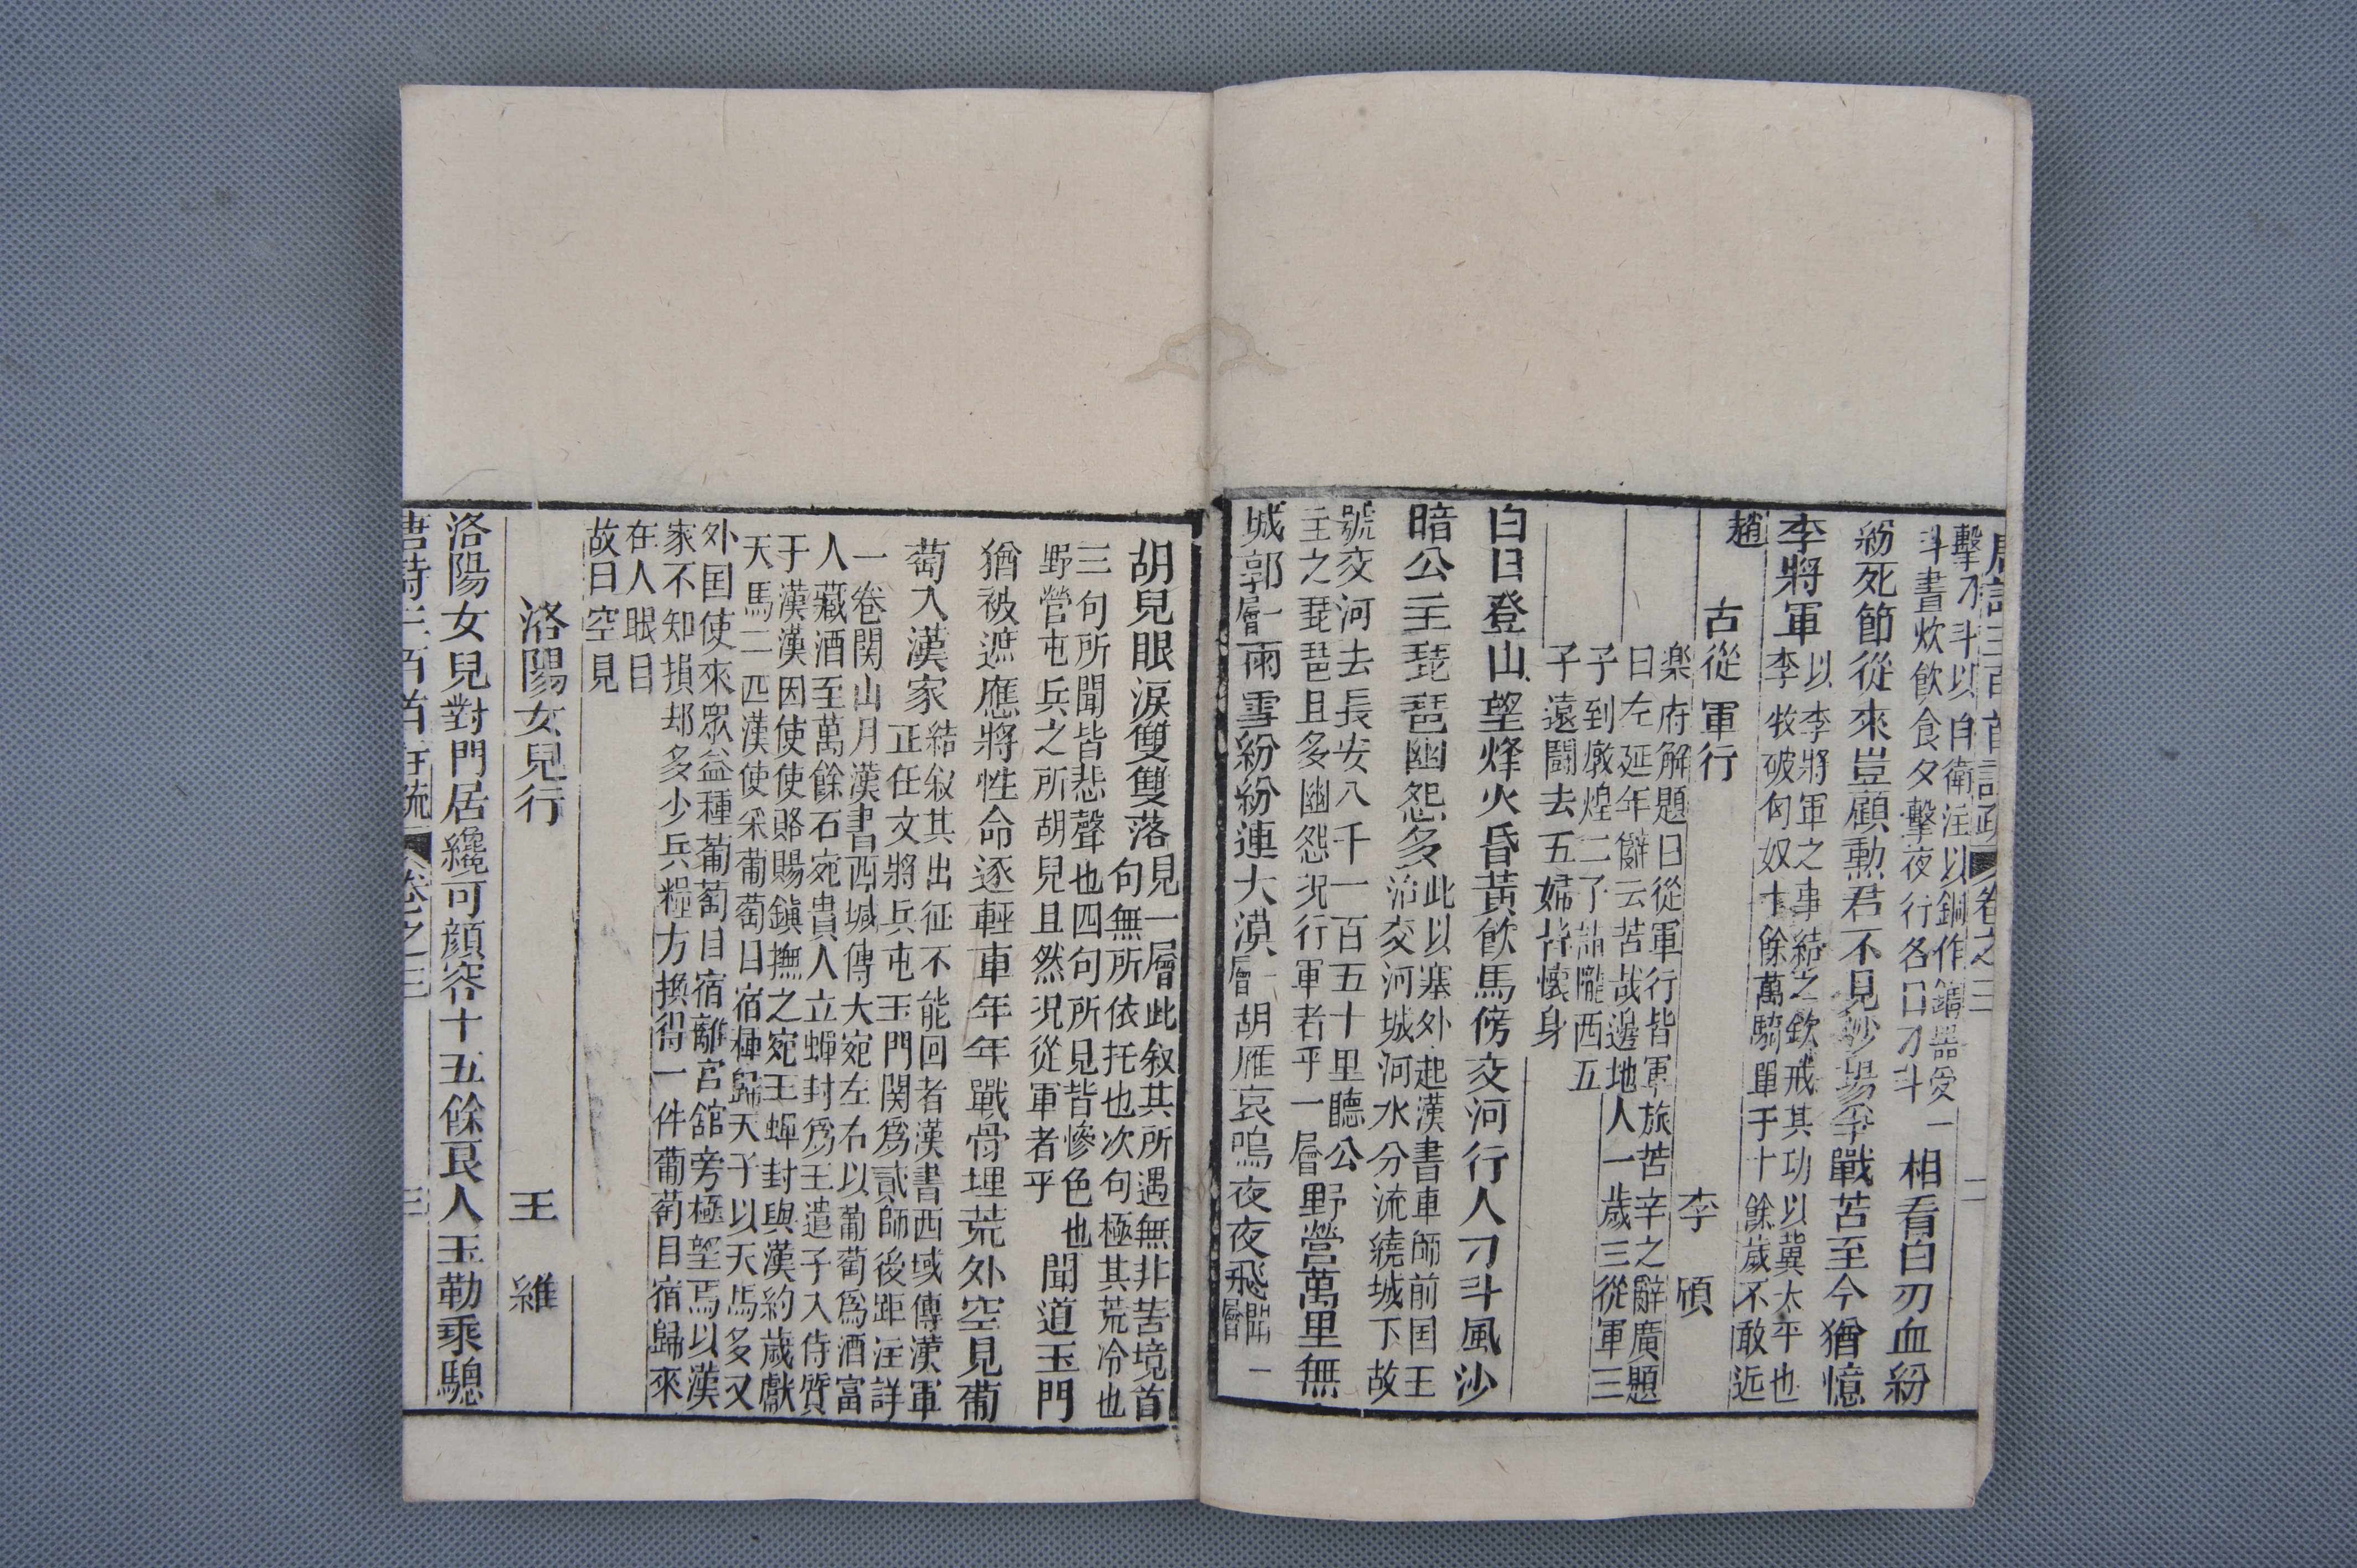 唐詩三百首註疏 卷之三 二
擊刁斗以自衛注以銅作鐎器受一
斗晝炊飲食夕擊夜行名曰刁斗
相看白刃血紛
紛死節從來豈顧勳君不見沙場爭戰苦至今猶憶
李將軍
以李將軍之事結之欽戒其功以冀太平也
李牧破匈奴十餘萬騎單于十餘歲不敢近
趙
古從軍行 李頎
楽府解題曰從軍行皆軍旅苦辛之辭廣題
曰左延年辭云苦哉邊地人一歲三從軍三
子到燉煌二子詣隴西五
子遠鬪去五婦皆懷身
白日登山望烽火昏黃飲馬傍交河行人刁斗風沙
暗公主琵琶幽怨多
此以塞外起漢書車師前国王
治交河城河水分流繞城下故
號交河去長安八千一百五十里聽公
主之琵琶且多幽怨況行軍者乎一層
野營萬里無
城郭一層雨雪紛紛連大漠一層胡雁哀鳴夜夜飛聞一層
胡兒眼淚雙雙落
見一層此叙其所遇無非苦境首
句無所依托也次句極其荒冷也
三句所聞皆悲聲也四句所見皆慘色也
野營屯兵之所胡兒且然況從軍者乎
聞道玉門
猶被遮應將性命逐輕車年年戰骨埋荒外空見葡
萄入漢家
結叙其出征不能回者漢書西域傳漢軍
正任文將兵屯玉門関為貳師後距注詳
一卷関山月漢書西域傳大宛左右以葡萄為酒富
人藏酒至萬餘石宛貴人立蟬封為王遣子入侍質
于漢漢因使使賂賜鎮撫之宛王蟬封與漢約歲獻
天馬二匹漢使采葡萄目宿種歸天子以天馬多又
外国使來眾益種葡萄目宿離宮舘旁極望焉以漢
家不知損却多少兵糧方換得一件葡萄目宿歸來
在人眼目
故曰空見
洛陽女兒行 王維
洛陽女兒對門居纔可顏容十五餘良人玉勒乘驄
唐詩三百首註疏 卷之三 三